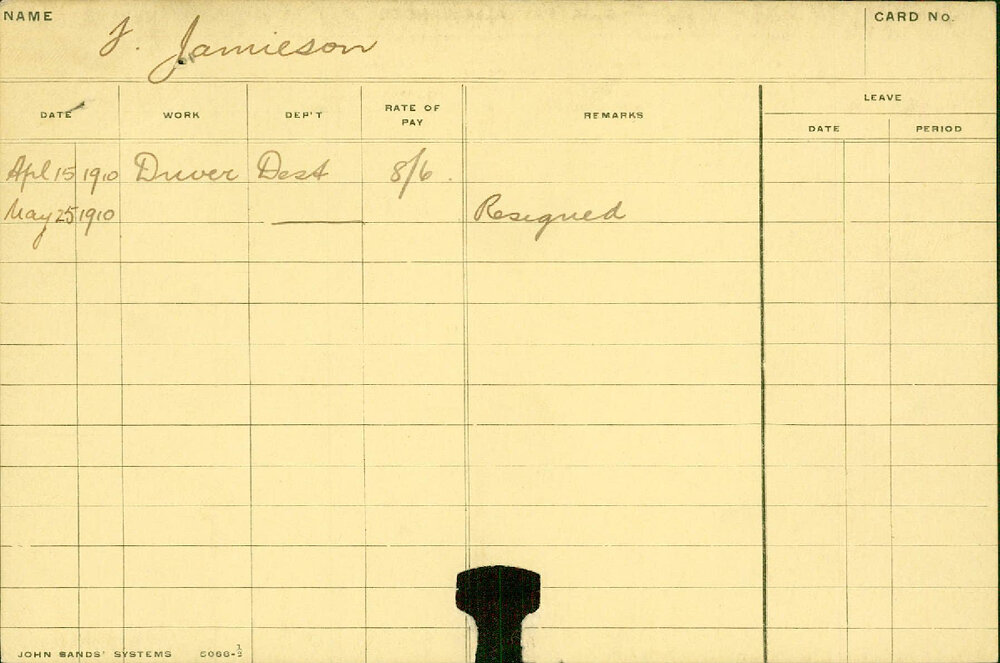 NAME F. Jamieson CARD No.
DATE WORK DEP'T RATE OF PAY REMARKS LEAVE
DATE PERIOD
Apl 15 1910 Driver Dest 8/6.
May 25 1910 Resigned
JOHN SANDS' SYSTEMS 5066-½